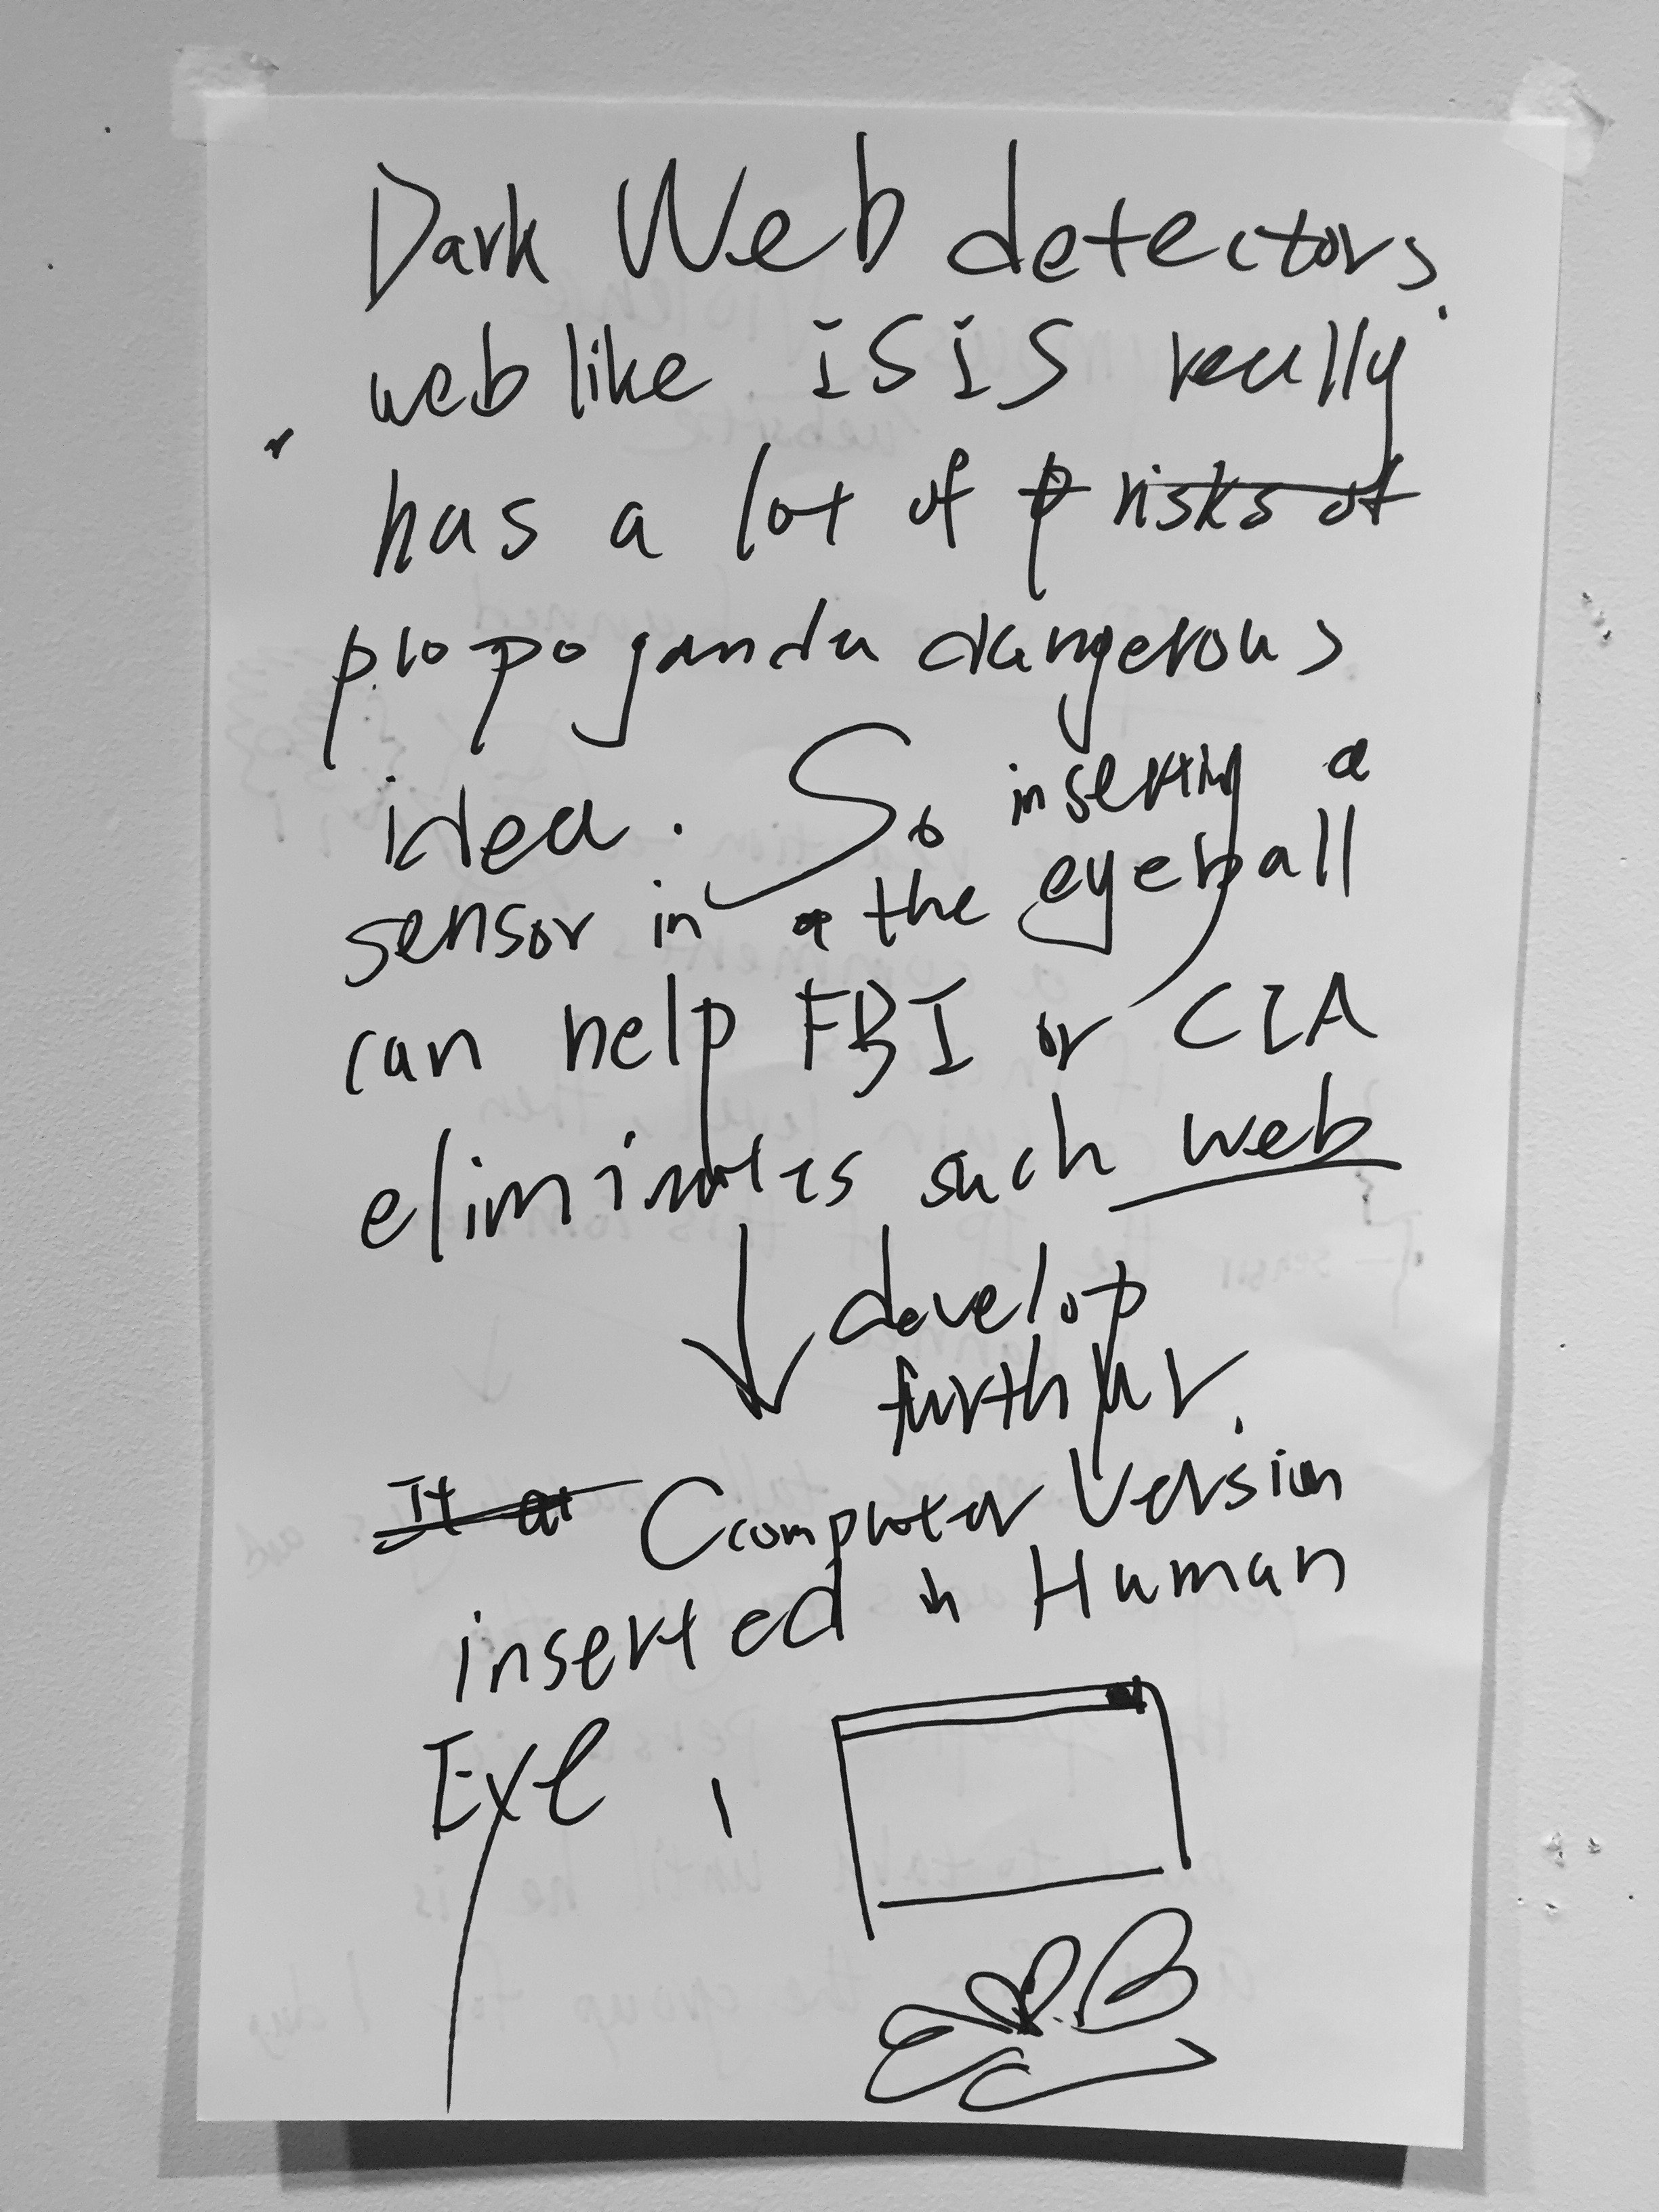 Dark Web detectors.
web like iSiS really
has a lot of p risks of
propoganda dangerous
idea. So inserting a
sensor in a the eyeball
can help FBI or CIA
eliminates such web
develop
furthur.
It a Ccomputer Version
inserted in Human